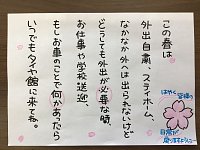 この春は
外出自粛、ステイホーム、
なかなか外へは出られないけど
どうしても外出が必要な時、
お仕事や学校送迎、
もしお車のことで何かあったら
いつでもタイヤ館に来てね。
はやく皆様の
日常が